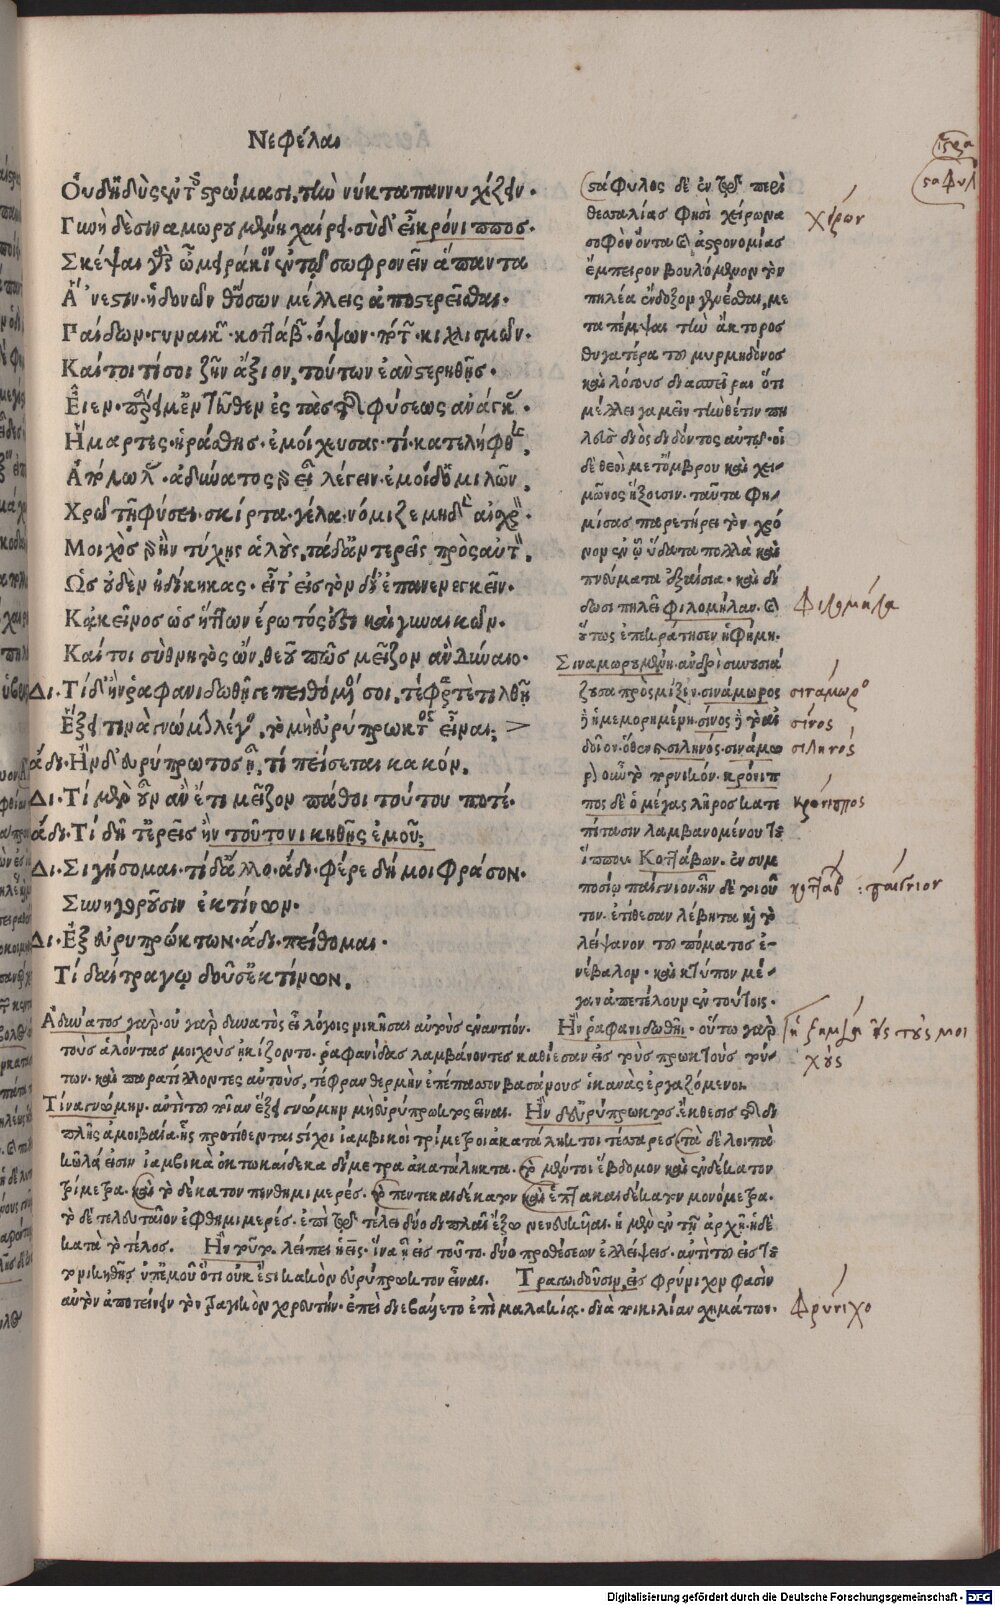 Νεφέλαι
Οὐδ' ἡδὺς ἐν τοῖς στρώμασι, τὴν νύκτα παννυχίζειν.
Γυνὴ δὲ σιναμωρουμένη χαίρει. σὺ δ' εἶ κρόνιππος.
Σκέψαι γὰρ ὦ μειράκιον ἐν τῷ σωφρονεῖν ἅπαντα
Ἄνεστιν. ἡδονῶν θ' ὅσων μέλλεις ἀποστερεῖσθαι.
Παίδων. γυναικῶν. κοττάβων. ὄψων. πότων. κιχλισμῶν.
Καίτοι τί σοι ζῆν ἄξιον, τούτων ἐὰν στερηθῇς.
Εἶεν. πάρειμ' ἐντεῦθεν ἐς τὰς τῆς φύσεως ἀνάγκας.
Ἥμαρτες. ἠράσθης. ἐμοίχευσας. τί. κατελήφθης.
Ἀπόλωλας. ἀδύνατος γὰρ εἶ λέγειν. ἐμοὶ δ' ὁμιλῶν,
Χρῶ τῇ φύσει. σκίρτα. γέλα. νόμιζε μηδὲν αἰσχρόν.
Μοιχὸς γὰρ ἢν τύχῃς ἁλοὺς, τάδ' ἀντερεῖς πρὸς αὐτόν,
Ὡς οὐδὲν ἠδίκηκας. εἶτ' εἰς τὸν δί' ἐπανενεγκεῖν.
Κἀκεῖνος ὡς ἥττων ἔρωτός ἐστι καὶ γυναικῶν.
Καίτοι σὺ θνητὸς ὢν, θεοῦ πῶς μεῖζον ἂν δύναιο.
Δι. Τί δ' ἢν ῥαφανιδωθῇ πειθόμενός σοι, τέφρᾳ τε τιλθῇ
Ἕξει τινὰ γνώμην λέγειν, τὸ μὴ εὐρύπρωκτος εἶναι;
ἄδι. Ἢν δ' εὐρύπρωκτος ᾖ, τί πείσεται κακόν,
Δι. Τί μὲν οὖν ἂν ἔτι μεῖζον πάθοι τούτου ποτέ.
ἄδι. Τί δῆτ' ἐρεῖς ἢν τοῦτο νικηθῇς ἐμοῦ;
Δι. Σιγήσομαι. τί δ' ἄλλο. ἄδι. φέρε δή μοι φράσον.
Συνηγοροῦσιν ἐκ τίνων.
Δι. Ἐξ εὐρυπρώκτων. ἄδι. πείθομαι.
Τί δαί τραγῳδοῦσ' ἐκ τίνων.
στάφυλος δὲ ἐν τῷ περὶ
θεσσαλίας φησὶ χείρωνα
σοφὸν ὄντα καὶ ἀστρονομίας
ἔμπειρον βουλόμενον τὸν
πηλέα ἔνδοξον γενέσθαι, με
ταπέμψαι τὴν ἄκτορος
θυγατέρα τοῦ μυρμηδόνος
καὶ λόγους διασπεῖραι ὅτι
μέλλει γαμεῖν τὴν θέτιν πη
λεὺς διὸς διδόντος αὐτῷ. οἱ
δὲ θεοὶ μετ' ὄμβρου καὶ χει-
μῶνος ἥξοισιν. ταῦτα φη-
μίσας παρετήρει τὸν χρό
νον ἐν ᾧ ὕδατα πολλὰ καὶ
πνεύματα ἐξαίσια. καὶ δί
δωσι πηλεῖ φιλομήλαν. καὶ
οὕτως ἐπεκράτησεν ἡ φήμη.
Σιναμωρουμένη. ἀνδρὶ συνουσιά
ζουσα πρὸς μίξιν. σινάμωρος
ἢ ἡ μεμορημένη. σίνος ἢ τὸ αἰ
δοῖον. ὅθεν σιληνός. σινάμω
ρον οὖν τὸ πορνικόν. κρόνιπ
πος δὲ ὁ μέγας λῆρος κατ' ἐ
πίτασιν λαμβανομένου τοῦ
ἵππου. Κοττάβων. ἐν συμ
ποσίῳ παίγνιον. ἦν δὲ τοιοῦ
τον. ἐτίθεσαν λέβητα καὶ τὸ
λείψανον τοῦ πόματος ἐ-
νέβαλον. καὶ κτύπον μέ-
γαν ἀπετέλουν ἐν τούτοις.
Ἀδύνατος γὰρ. οὐ γὰρ δυνατὸς εἶ λόγοις νικῆσαι αὐτοὺς ἐναντίον. Ἢν ῥαφανιδωθῇ. οὕτω γὰρ
τοὺς ἁλόντας μοιχοὺς ᾐκίζοντο. ῥαφανίδας λαμβάνοντες καθίεσαν εἰς τοὺς πρωκτοὺς τού-
των. καὶ παρατίλλοντες αὐτοὺς, τέφραν θερμὴν ἐπέπασσον βασάνους ἱκανὰς ἐργαζόμενοι.
Τίνα γνώμην. ἀντὶ τοῦ ποίαν ἕξει γνώμην μὴ εὐρύπρωκτος εἶναι. Ἢν δ' εὐρύπρωκτος. ἔκθεσις τῆς δι
πλῆς ἀμοιβαία. ἧς προτίθενται στίχοι ἰαμβικοὶ τρίμετροι ἀκατάληκτοι τέσσαρες. τὰ δὲ λοιπὰ
κῶλά εἰσιν ἰαμβικὰ ὀκτωκαίδεκα δίμετρα ἀκατάληκτα. τὸ μέντοι ἕβδομον καὶ ἑνδέκατον
τρίμετρα. καὶ τὸ δέκατον πενθημιμερές. τὸ πεντεκαιδέκατον καὶ ἑπτακαιδέκατον μονόμετρα.
τὸ δὲ τελευταῖον ἐφθημιμερές. ἐπὶ τῷ τέλει δύο διπλαῖ ἔξω νενευκυῖαι. ἡ μὲν ἐν τῇ ἀρχῇ. ἡ δὲ
κατὰ τὸ τέλος. Ἢν τοῦτο. λείπει ἡ εἰς. ἵνα ᾖ εἰς τοῦτο. δύο προθέσεων ἐλλείψεις. ἀντὶ τοῦ εἰς τοῦ
το νικηθῇς ὑπ' ἐμοῦ ὅτι οὐκ ἔστι κακὸν εὐρύπρωκτον εἶναι. Τραγῳδοῦσιν, εἰς φρύνιχον φασὶν
αὐτὸν ἀποτείνειν τὸν τραγικὸν χορευτήν. ἐπεὶ διεβάλλετο ἐπὶ μαλακίᾳ. διὰ ποικιλίαν σχημάτων.
στάφυλ
χείρων
Φιλομήλα
σινάμωρο
σίνος
σιληνός
κρόνιππος
κότταβ : παίγνιον
ἡ ζημία εἰς τοὺς μοι
χούς
Φρύνιχο
Digitalisierung gefördert durch die Deutsche Forschungsgemeinschaft - DFG